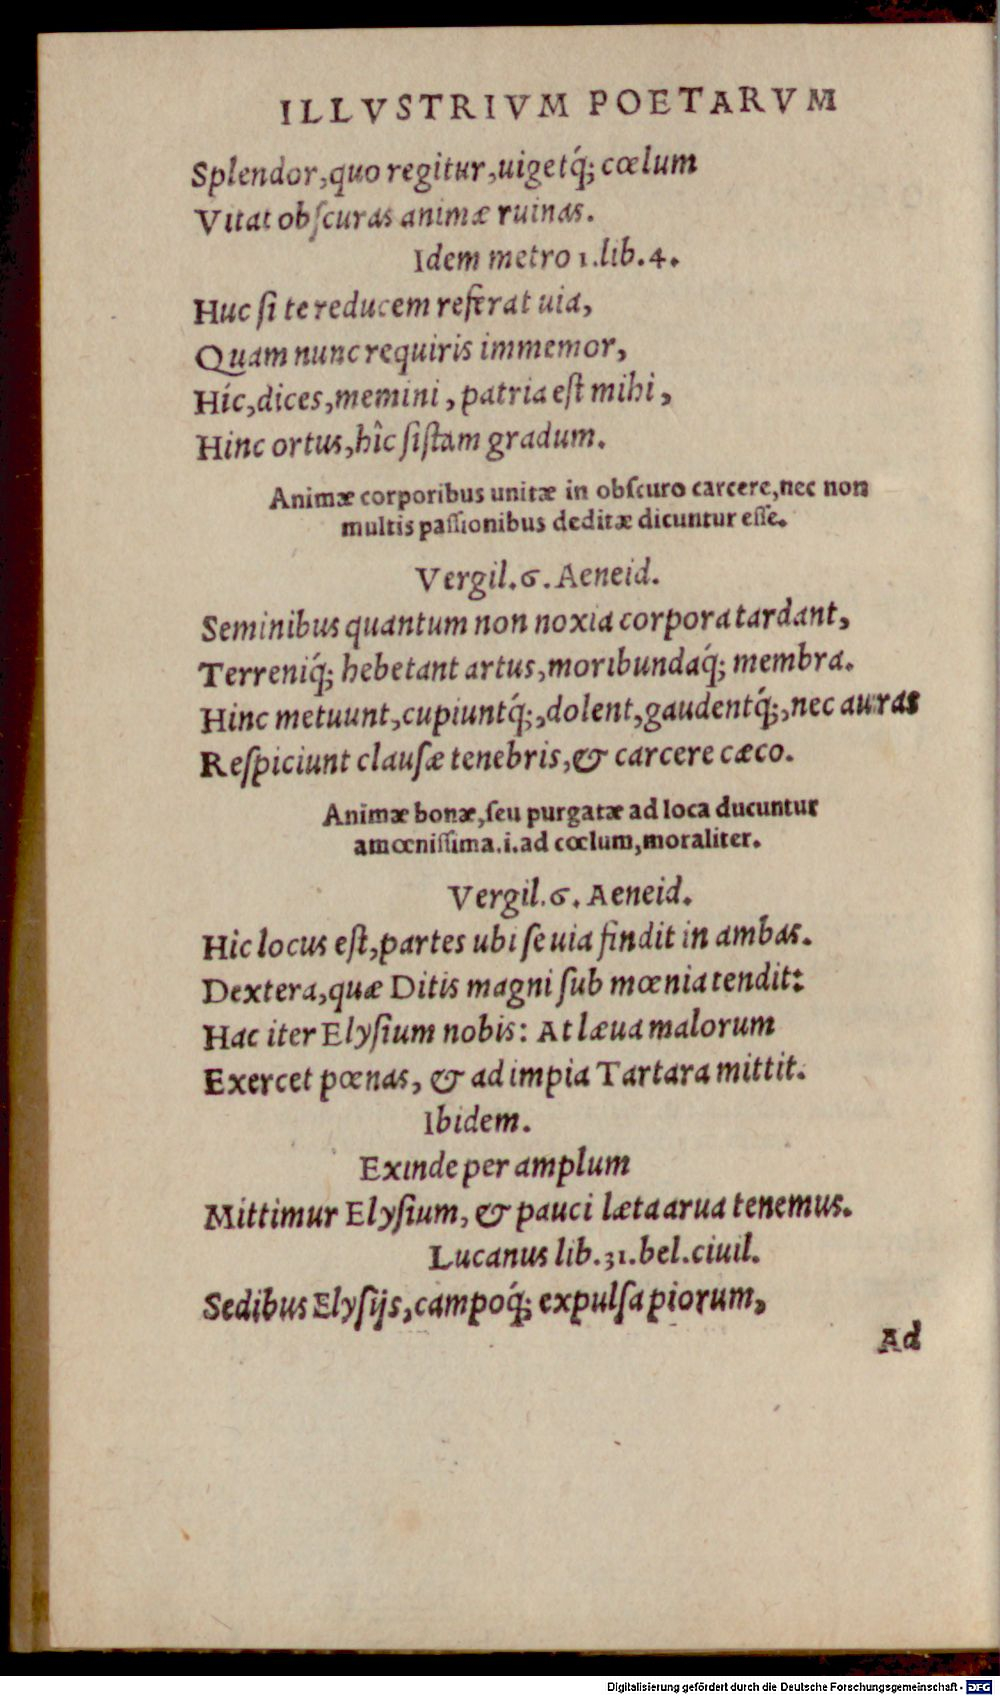 ILLVSTRIVM POETARVM
Splendor,quo regitur,uigetq́; cœlum
Vitat obſcuras animæ ruinas.
Idem metro 1.lib.4.
Huc ſi te reducem referat uia,
Quam nunc requiris immemor,
Híc,dices,memini, patria eſt mihi,
Hinc ortus,hîc ſiſtam gradum.
Animæ corporibus unitæ in obſcuro carcere,nec non
multis paſſionibus deditæ dicuntur eſſe.
Vergil.6. Aeneid.
Seminibus quantum non noxia corpora tardant,
Terreniq́; hebetant artus,moribundaq́; membra.
Hinc metuunt,cupiuntq́;,dolent,gaudentq́;,nec auras
Reſpiciunt clauſæ tenebris,& carcere cæco.
Animæ bonæ,ſeu purgatæ ad loca ducuntur
amœniſſima.i.ad cœlum,moraliter.
Vergil.6. Aeneid.
Hic locus eſt,partes ubi ſe uia findit in ambas.
Dextera,quæ Ditis magni ſub mœnia tendit:
Hac iter Elyſium nobis: At læua malorum
Exercet pœnas, & ad impia Tartara mittit.
Ibidem.
Exinde per amplum
Mittimur Elyſium, & pauci læta arua tenemus.
Lucanus lib.31.bel.ciuil.
Sedibus Elyſijs,campoq́; expulſa piorum,
Ad
Digitalisierung gefördert durch die Deutsche Forschungsgemeinschaft - DFG